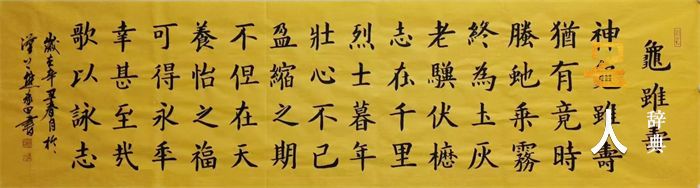 龜雖壽
神龜雖壽
猶有竟時
螣虵乘霧
終為圡灰
老驥伏櫪
志在千里
烈士暮年
壯心不已
盈縮之期
不但在天
養怡之福
可得永年
幸甚至哉
歌以詠志
歲在辛丑春月於
人
辞典